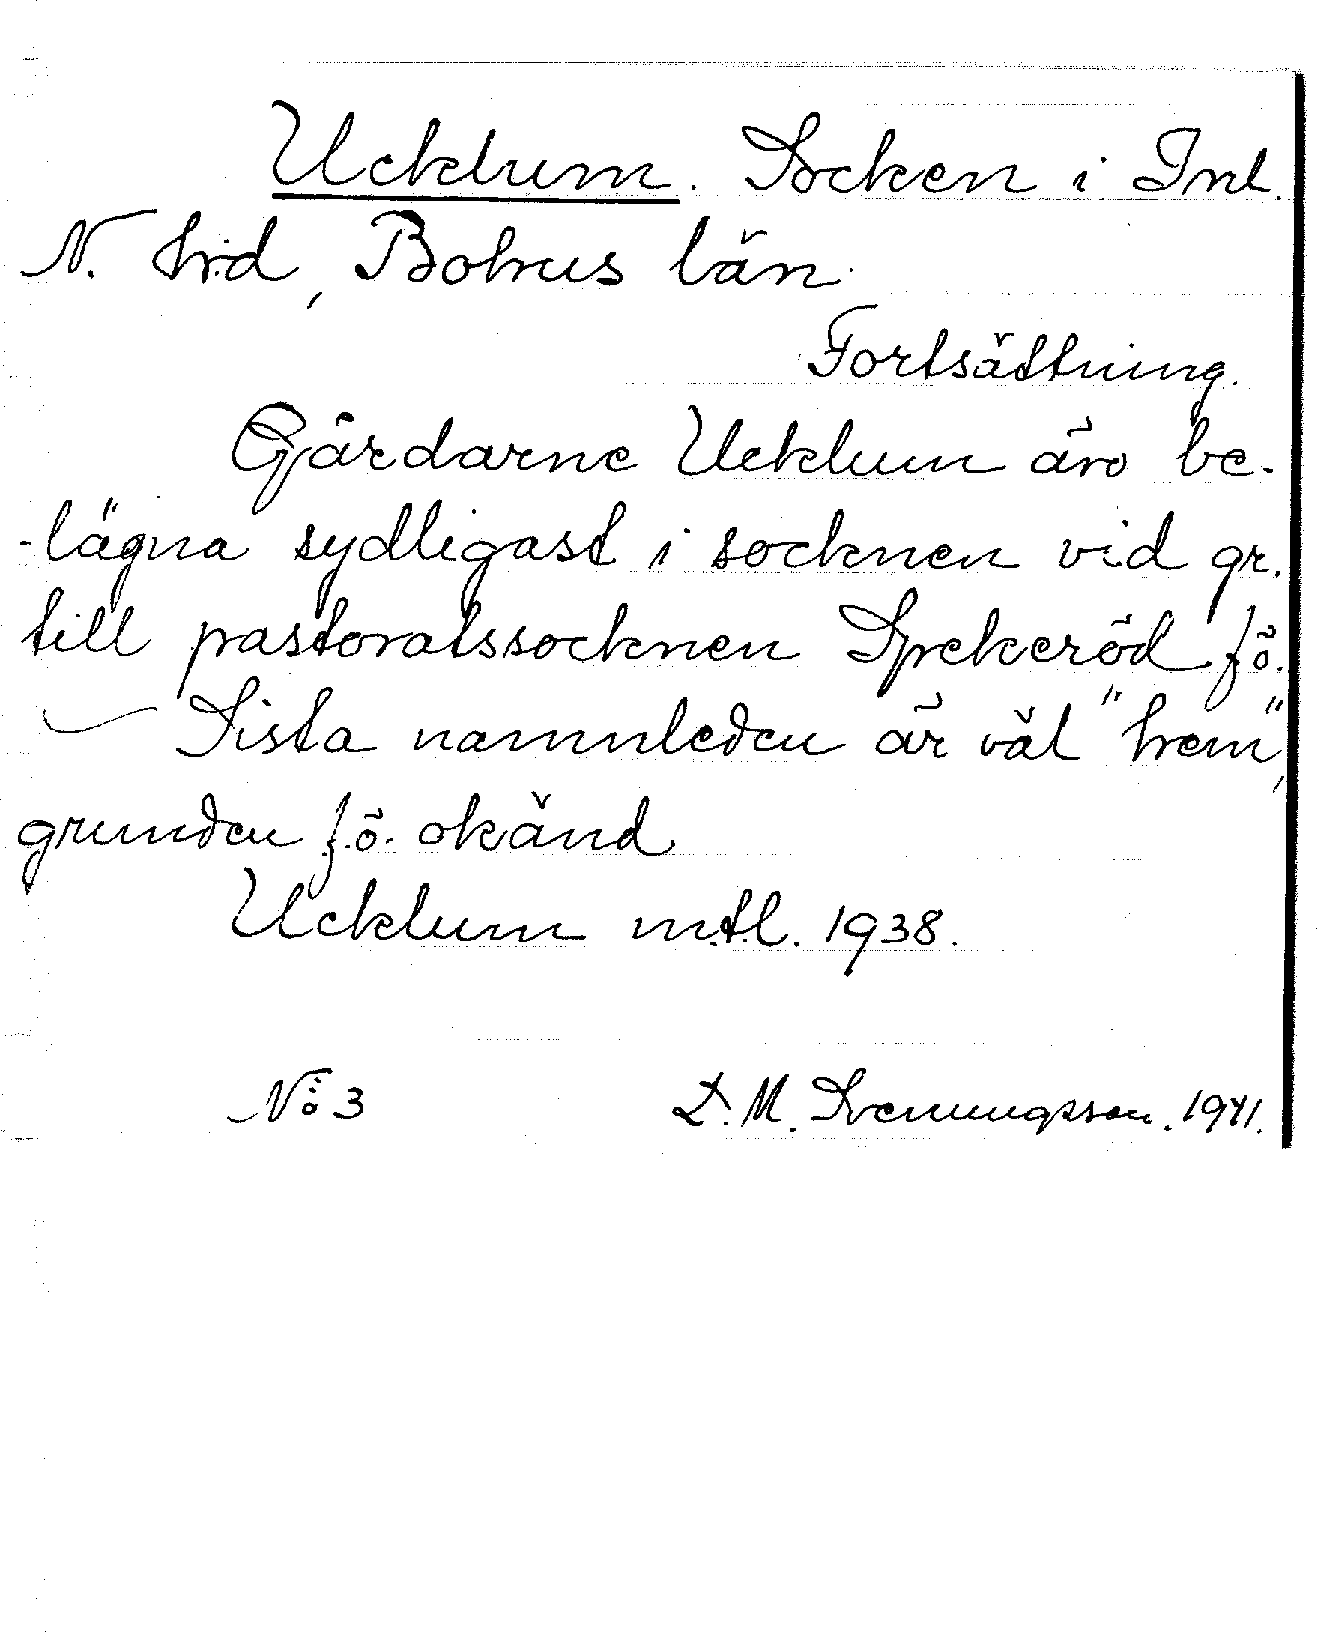 Ucklum. Socken i Inl.
N. hrd, Bohus län.
Fortsättning.
Gårdarne Ucklum äro be-
-lägna sydligast i socknen vid gr.
till pastoratssocknen Spekeröd f.ö.
— Sista namnleden är väl "hem",
grunden f.ö. okänd
Ucklum m.t.l. 1938.
No 3 D. M. Svenungsson. 1941.